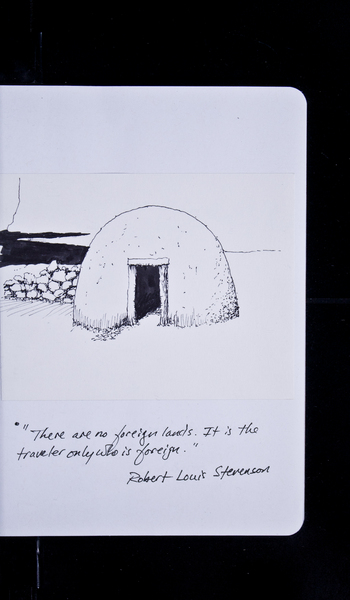 •"There are no foreign lands. It is the
traveler only who is foreign."
Robert Louis Stevenson